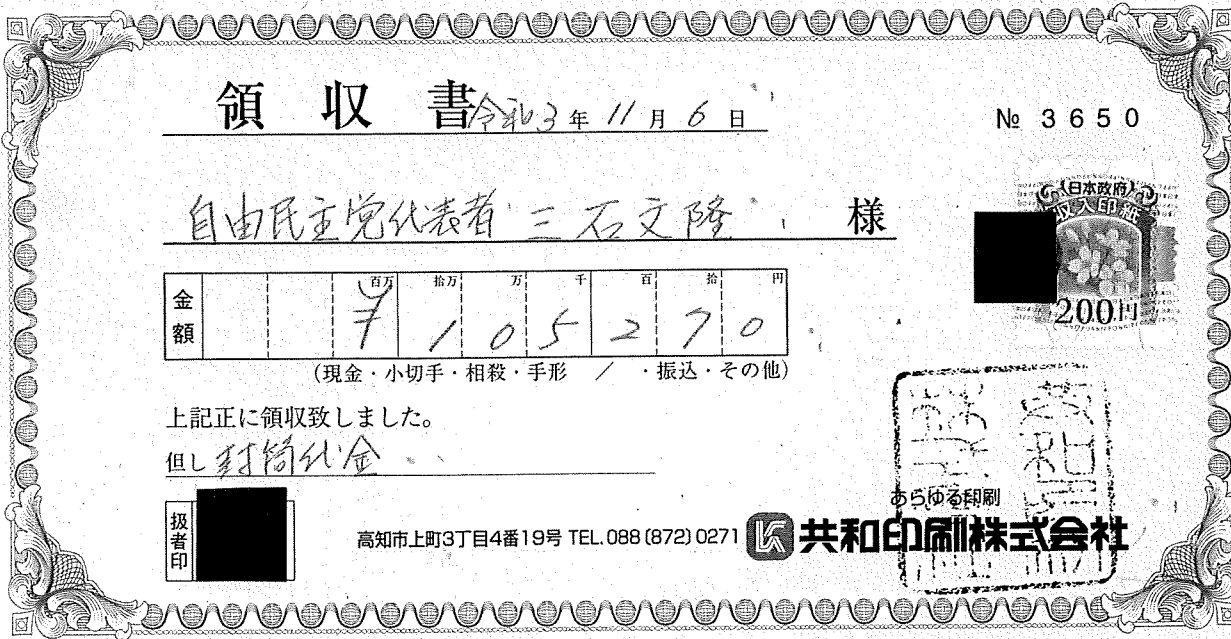 領収書 令和3年11月6日
№ 3650
自由民主党代表者 三石文隆 様
日本政府
収入印紙
200円
金額 百万 拾万 万 千 百 拾 円
¥105270
(現金・小切手・相殺・手形 / ・振込・その他)
上記正に領収致しました。
但し 封筒代金
扱者印
あらゆる印刷
高知市上町3丁目4番19号 TEL.088(872)0271 共和印刷株式会社